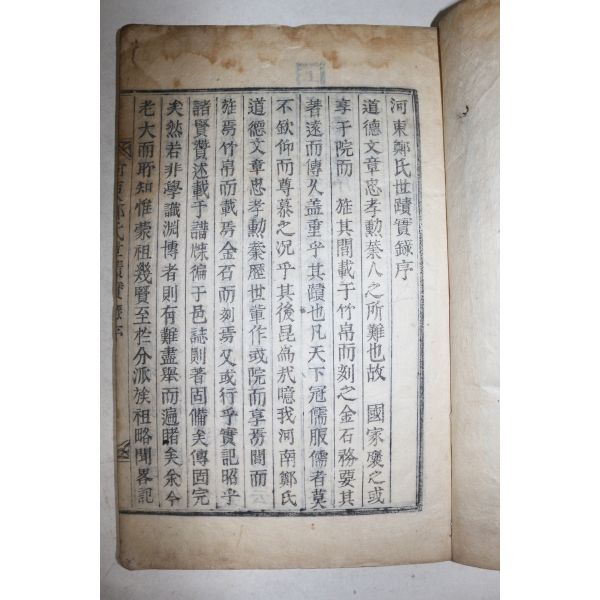 河東鄭氏世蹟實錄序
道德文章忠孝勳業人之所難也故 國家褒之或
享于院而 旌其閭載于竹帛而刻之金石務要其
著遠而傳久盖重乎其蹟也凡天下冠儒服儒者莫
不欽仰而尊慕之况乎其後昆爲哉噫我河南鄭氏
道德文章忠孝勳業歷世輩作或院而享焉閭而
旌焉竹帛而載焉金石而刻焉又或行乎實記昭乎
諸賢賛述載于譜牒徧于邑誌則著固備矣傳固完
矣然若非學識淵博者則有難盡舉而遍睹矣余今
老大而聍知惟蒙祖幾賢至於分派族祖略聞畧記
河東鄭氏世蹟實錄序